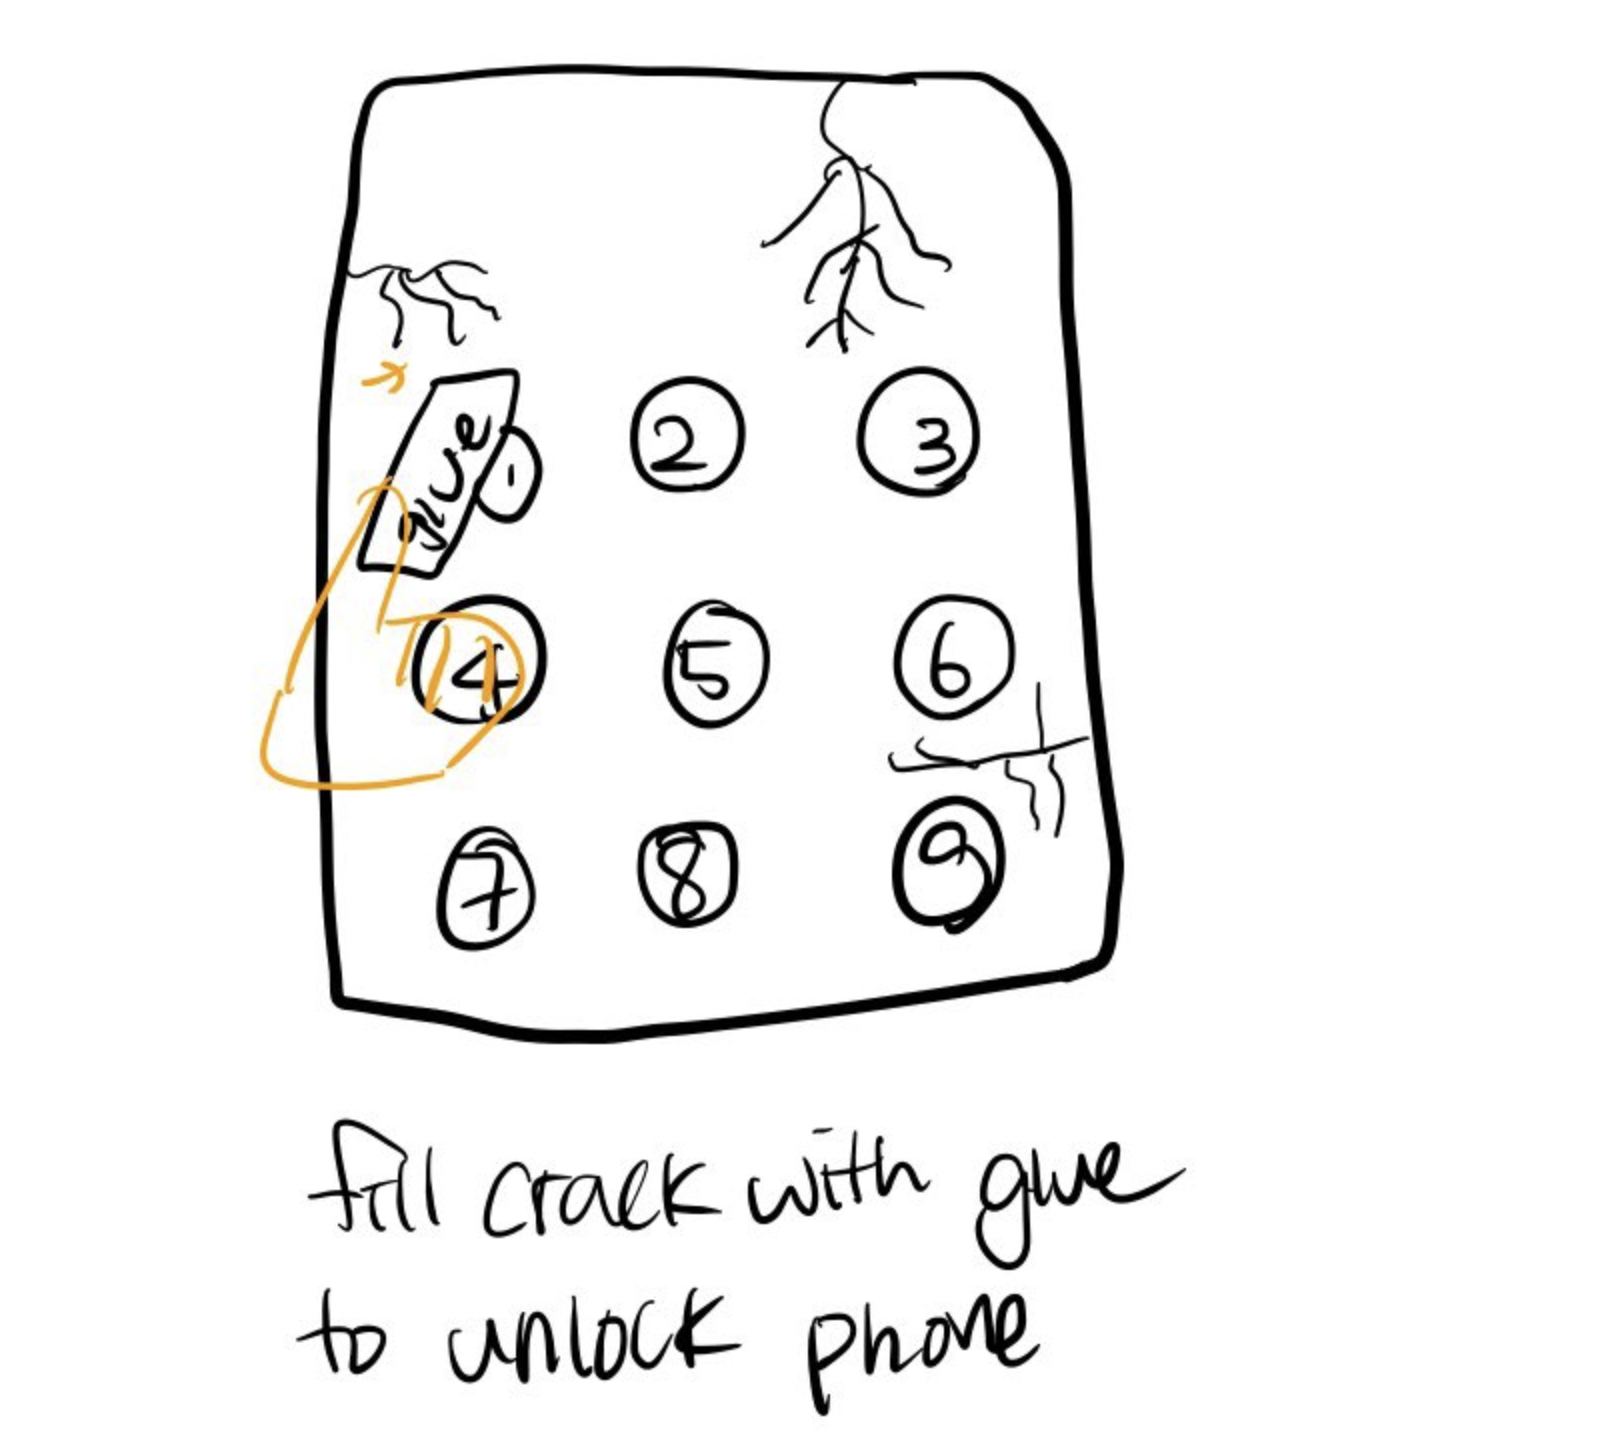 glue
1
2
3
4
5
6
7
8
9
fill crack with glue
to unlock phone